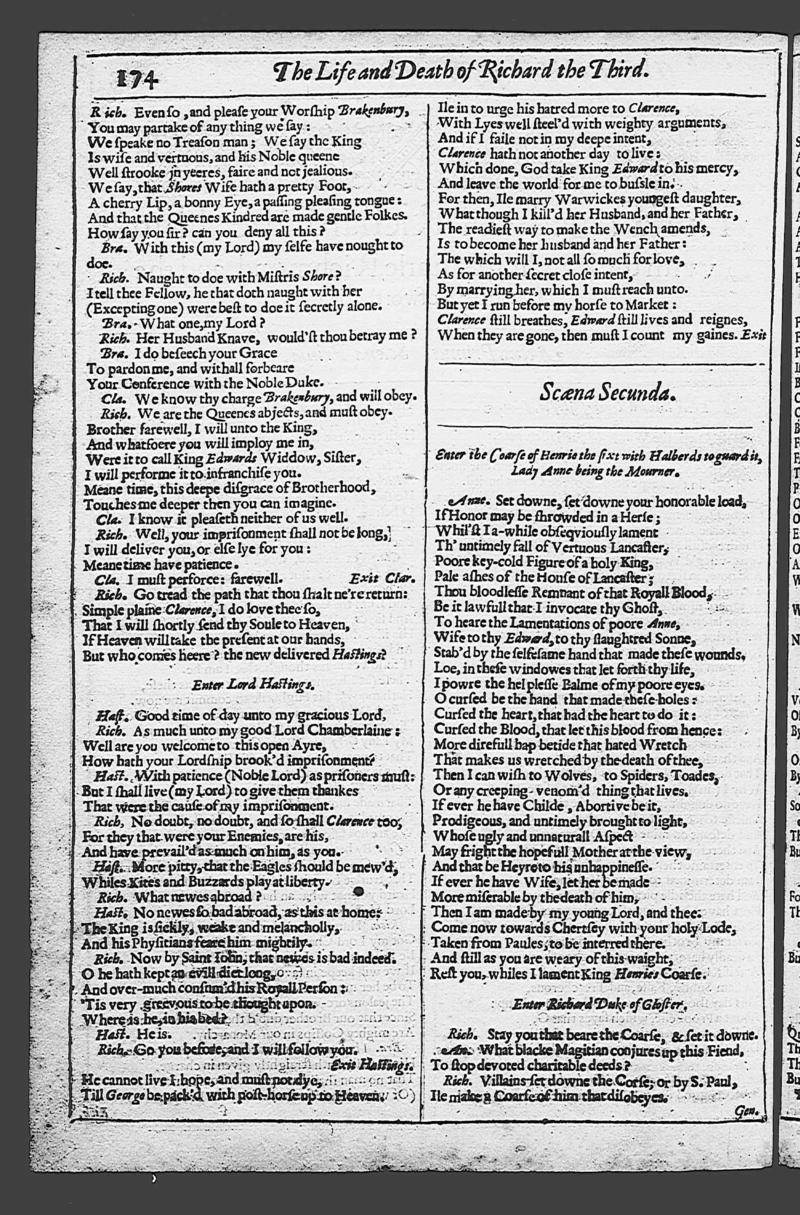 174
The Life and Death of Richard the Third.
Rich. Even so, and please your Worship Brakenbury,
You may partake of any thing we say:
We speake no Treason man; We say the King
Is wise and vertuous, and his Noble queene
Well strooke in yeeres, faire and not jealious.
We say, that Shores Wife hath a pretty Foot,
A cherry Lip, a bonny Eye, a passing pleasing tongue:
And that the Queenes Kindred are made gentle Folkes.
How say you sir? can you deny all this?
Bra. With this (my Lord) my selfe have nought to
doe.
Rich. Naught to doe with Mistris Shore?
I tell thee Fellow, he that doth naught with her
(Excepting one) were best to doe it secretly alone.
Bra. What one, my Lord?
Rich. Her Husband Knave, would'st thou betray me?
Bra. I do beseech your Grace
To pardon me, and withall forbeare
Your Conference with the Noble Duke.
Cla. We know thy charge Brakenbury, and will obey.
Rich. We are the Queenes abjects, and must obey.
Brother farewell, I will unto the King,
And whatsoere you will imploy me in,
Were it to call King Edwards Widdow, Sister,
I will performe it to infranchise you.
Meane time, this deepe disgrace of Brotherhood,
Touches me deeper then you can imagine.
Cla. I know it pleaseth neither of us well.
Rich. Well, your imprisonment shall not be long,
I will deliver you, or else lye for you:
Meane time have patience.
Cla. I must perforce: farewell. Exit Clar.
Rich. Go tread the path that thou shalt ne're return:
Simple plaine Clarence, I do love thee so,
That I will shortly send thy Soule to Heaven,
If Heaven will take the present at our hands,
But who comes heere? the new delivered Hastings?
Enter Lord Hastings.
Hast. Good time of day unto my gracious Lord,
Rich. As much unto my good Lord Chamberlaine:
Well are you welcome to this open Ayre,
How hath your Lordship brook'd imprisonment?
Hast. With patience (Noble Lord) as prisoners must:
But I shall live (my Lord) to give them thankes
That were the cause of my imprisonment.
Rich, No doubt, no doubt, and so shall Clarence too,
For they that were your Enemies, are his,
And have prevail'd as much on him, as you.
Hast. More pitty, that the Eagles should be mew'd,
Whiles Kites and Buzzards play at liberty.
Rich. What newes abroad?
Hast. No newes so bad abroad, as this at home:
The King is sickly, weake and melancholly,
And his Physitians feare him mightily.
Rich. Now by Saint Iohn, that newes is bad indeed.
O he hath kept an evill diet long,
And over-much consum'd his Royall Person:
'Tis very greevous to be thought upon.
Where is he, in his bed?
Hast. He is.
Rich. Go you before, and I will follow you.
Exit Hastings.
He cannot live I hope, and must not dye,
Till George be pack'd with post-horse up to Heaven.
Ile in to urge his hatred more to Clarence,
With Lyes well steel'd with weighty arguments,
And if I faile not in my deepe intent,
Clarence hath not another day to live:
Which done, God take King Edward to his mercy,
And leave the world for me to bussle in.
For then, Ile marry Warwickes youngest daughter,
What though I kill'd her Husband, and her Father,
The readiest way to make the Wench amends,
Is to become her husband and her Father:
The which will I, not all so much for love,
As for another secret close intent,
By marrying her, which I must reach unto.
But yet I run before my horse to Market:
Clarence still breathes, Edward still lives and reignes,
When they are gone, then must I count my gaines. Exit
Scæna Secunda.
Enter the Coarse of Henrie the sixt with Halberds to guard it,
Lady Anne being the Mourner.
Anne. Set downe, set downe your honorable load,
If Honor may be shrowded in a Herse;
Whil'st I a-while obseqviously lament
Th' untimely fall of Vertuous Lancaster,
Poore key-cold Figure of a holy King,
Pale ashes of the House of Lancaster;
Thou bloodlesse Remnant of that Royall Blood,
Be it lawfull that I invocate thy Ghost,
To heare the Lamentations of poore Anne,
Wife to thy Edward, to thy slaughtred Sonne,
Stab'd by the selfesame hand that made these wounds.
Loe, in these windowes that let forth thy life,
I powre the helplesse Balme of my poore eyes.
O cursed be the hand that made these holes:
Cursed the heart, that had the heart to do it:
Cursed the Blood, that let this blood from hence:
More direfull hap betide that hated Wretch
That makes us wretched by the death of thee,
Then I can wish to Wolves, to Spiders, Toades,
Or any creeping venom'd thing that lives.
If ever he have Childe, Abortive be it,
Prodigeous, and untimely brought to light,
Whose ugly and unnaturall Aspect
May fright the hopefull Mother at the view,
And that be Heyre to his unhappinesse.
If ever he have Wife, let her be made
More miserable by the death of him,
Then I am made by my young Lord, and thee.
Come now towards Chertsey with your holy Lode,
Taken from Paules, to be interred there.
And still as you are weary of this waight,
Rest you, whiles I lament King Henries Coarse.
Enter Richard Duke of Gloster.
Rich. Stay you that beare the Coarse, & set it downe.
An. What blacke Magitian conjures up this Fiend,
To stop devoted charitable deeds?
Rich. Villains set downe the Corse, or by S. Paul,
Ile make a Coarse of him that disobeyes.
Gen.